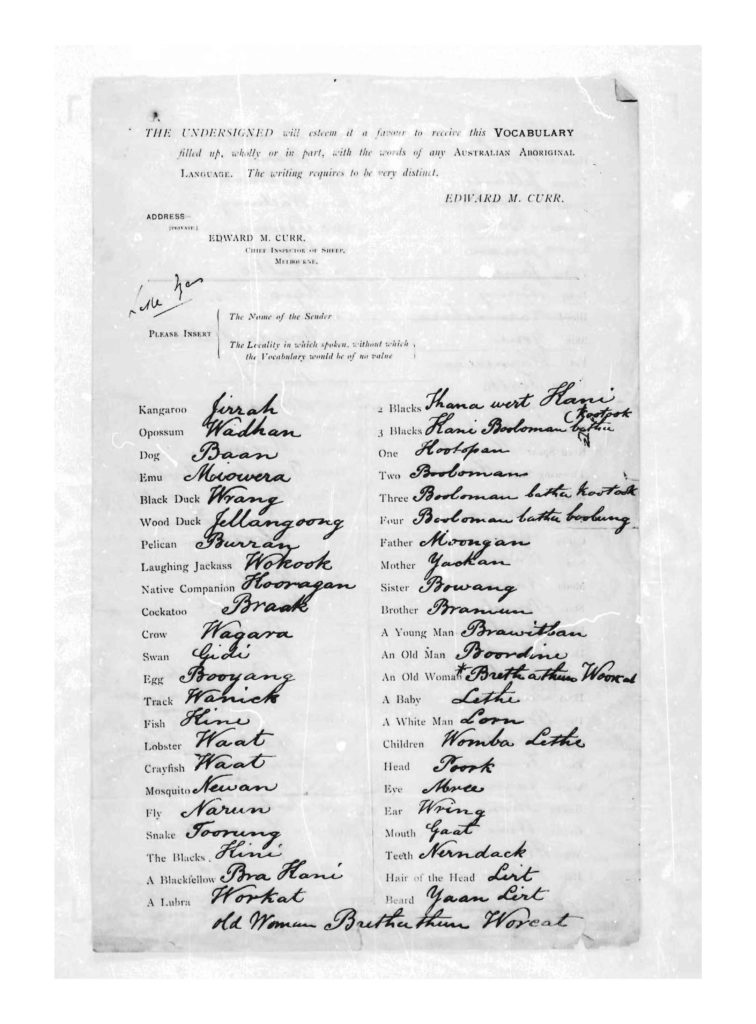 THE UNDERSIGNED will esteem it a favour to receive this VOCABULARY
filled up, wholly or in part, with the words of any AUSTRALIAN ABORIGINAL
LANGUAGE. The writing requires to be very distinct.
EDWARD M. CURR.
ADDRESS—
[PRIVATE]
EDWARD M. CURR,
CHIEF INSPECTOR OF SHEEP,
MELBOURNE.
The Name of the Sender
PLEASE INSERT
The Locality in which spoken, without which
the Vocabulary would be of no value
Kangaroo Jirrah
Opossum Wadhan
Dog Baan
Emu Miowera
Black Duck Wrang
Wood Duck Jellangoong
Pelican Burran
Laughing Jackass Wokook
Native Companion Kooragan
Cockatoo Braak
Crow Wagara
Swan Gidi
Egg Booyang
Track Wanick
Fish Kine
Lobster Waat
Crayfish Waat
Mosquito Newan
Fly Narun
Snake Toorung
The Blacks Kini
A Blackfellow Bra Kani
A Lubra Workat
2 Blacks Thana wert Kani
3 Blacks Kani Booloman batha Kootpok
One Kootopan
Two Booloman
Three Booloman batha Kootook
Four Booloman batha boolung
Father Moongan
Mother Yackan
Sister Bowang
Brother Bramun
A Young Man Brawithan
An Old Man Boordine
An Old Woman * Brethathun Wookat
A Baby Lethe
A White Man Lorn
Children Womba Lethe
Head Poork
Eye Mree
Ear Wring
Mouth Gaat
Teeth Nerndack
Hair of the Head Lirt
Beard Yaan Lirt
old Woman Brethathun Worcat